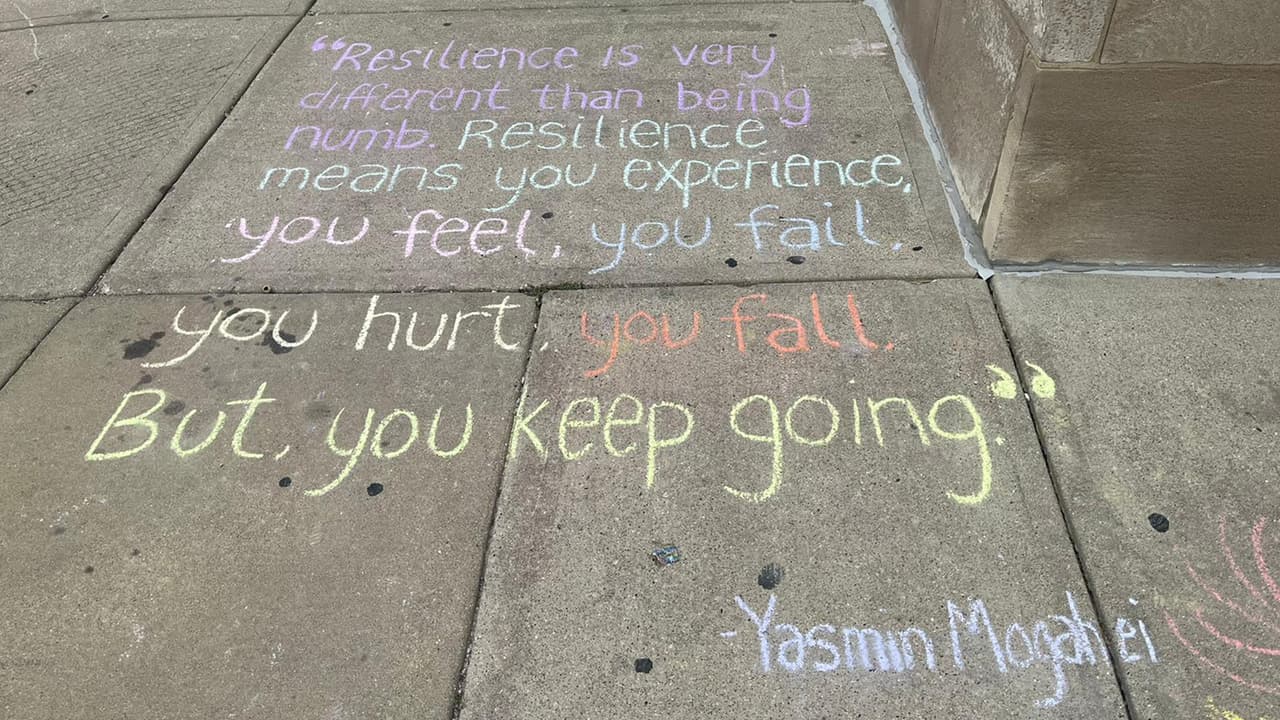 “Resilience is very
different than being
numb. Resilience
means you experience,
you feel, you fail,
you hurt, you fall.
But, you keep going.”
-Yasmin Mogahei